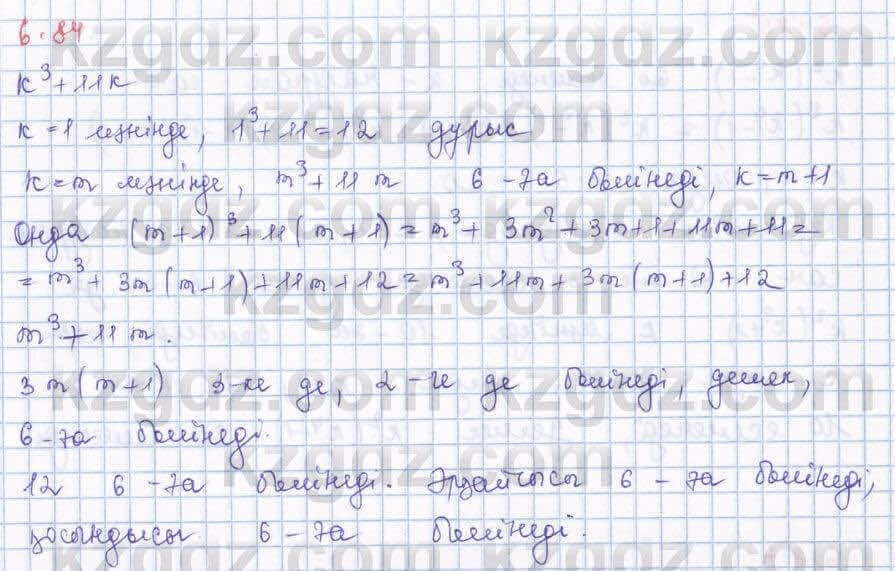 6.84
k³+11k
k=1 мәнінде, 1³+11=12 дұрыс
k=m мәнінде, m³+11m 6-ға бөлінеді, k=m+1
Онда (m+1)³+11(m+1)=m³+3m²+3m+1+11m+11=
=m³+3m(m+1)+11m+12=m³+11m+3m(m+1)+12
m³+11m.
3m(m+1) 3-ке де, 2-ге де бөлінеді, демек,
6-ға бөлінеді.
12 6-ға бөлінеді. Әрқайсысы 6-ға бөлінеді,
қосындысы 6-ға бөлінеді.
kzgdz.com